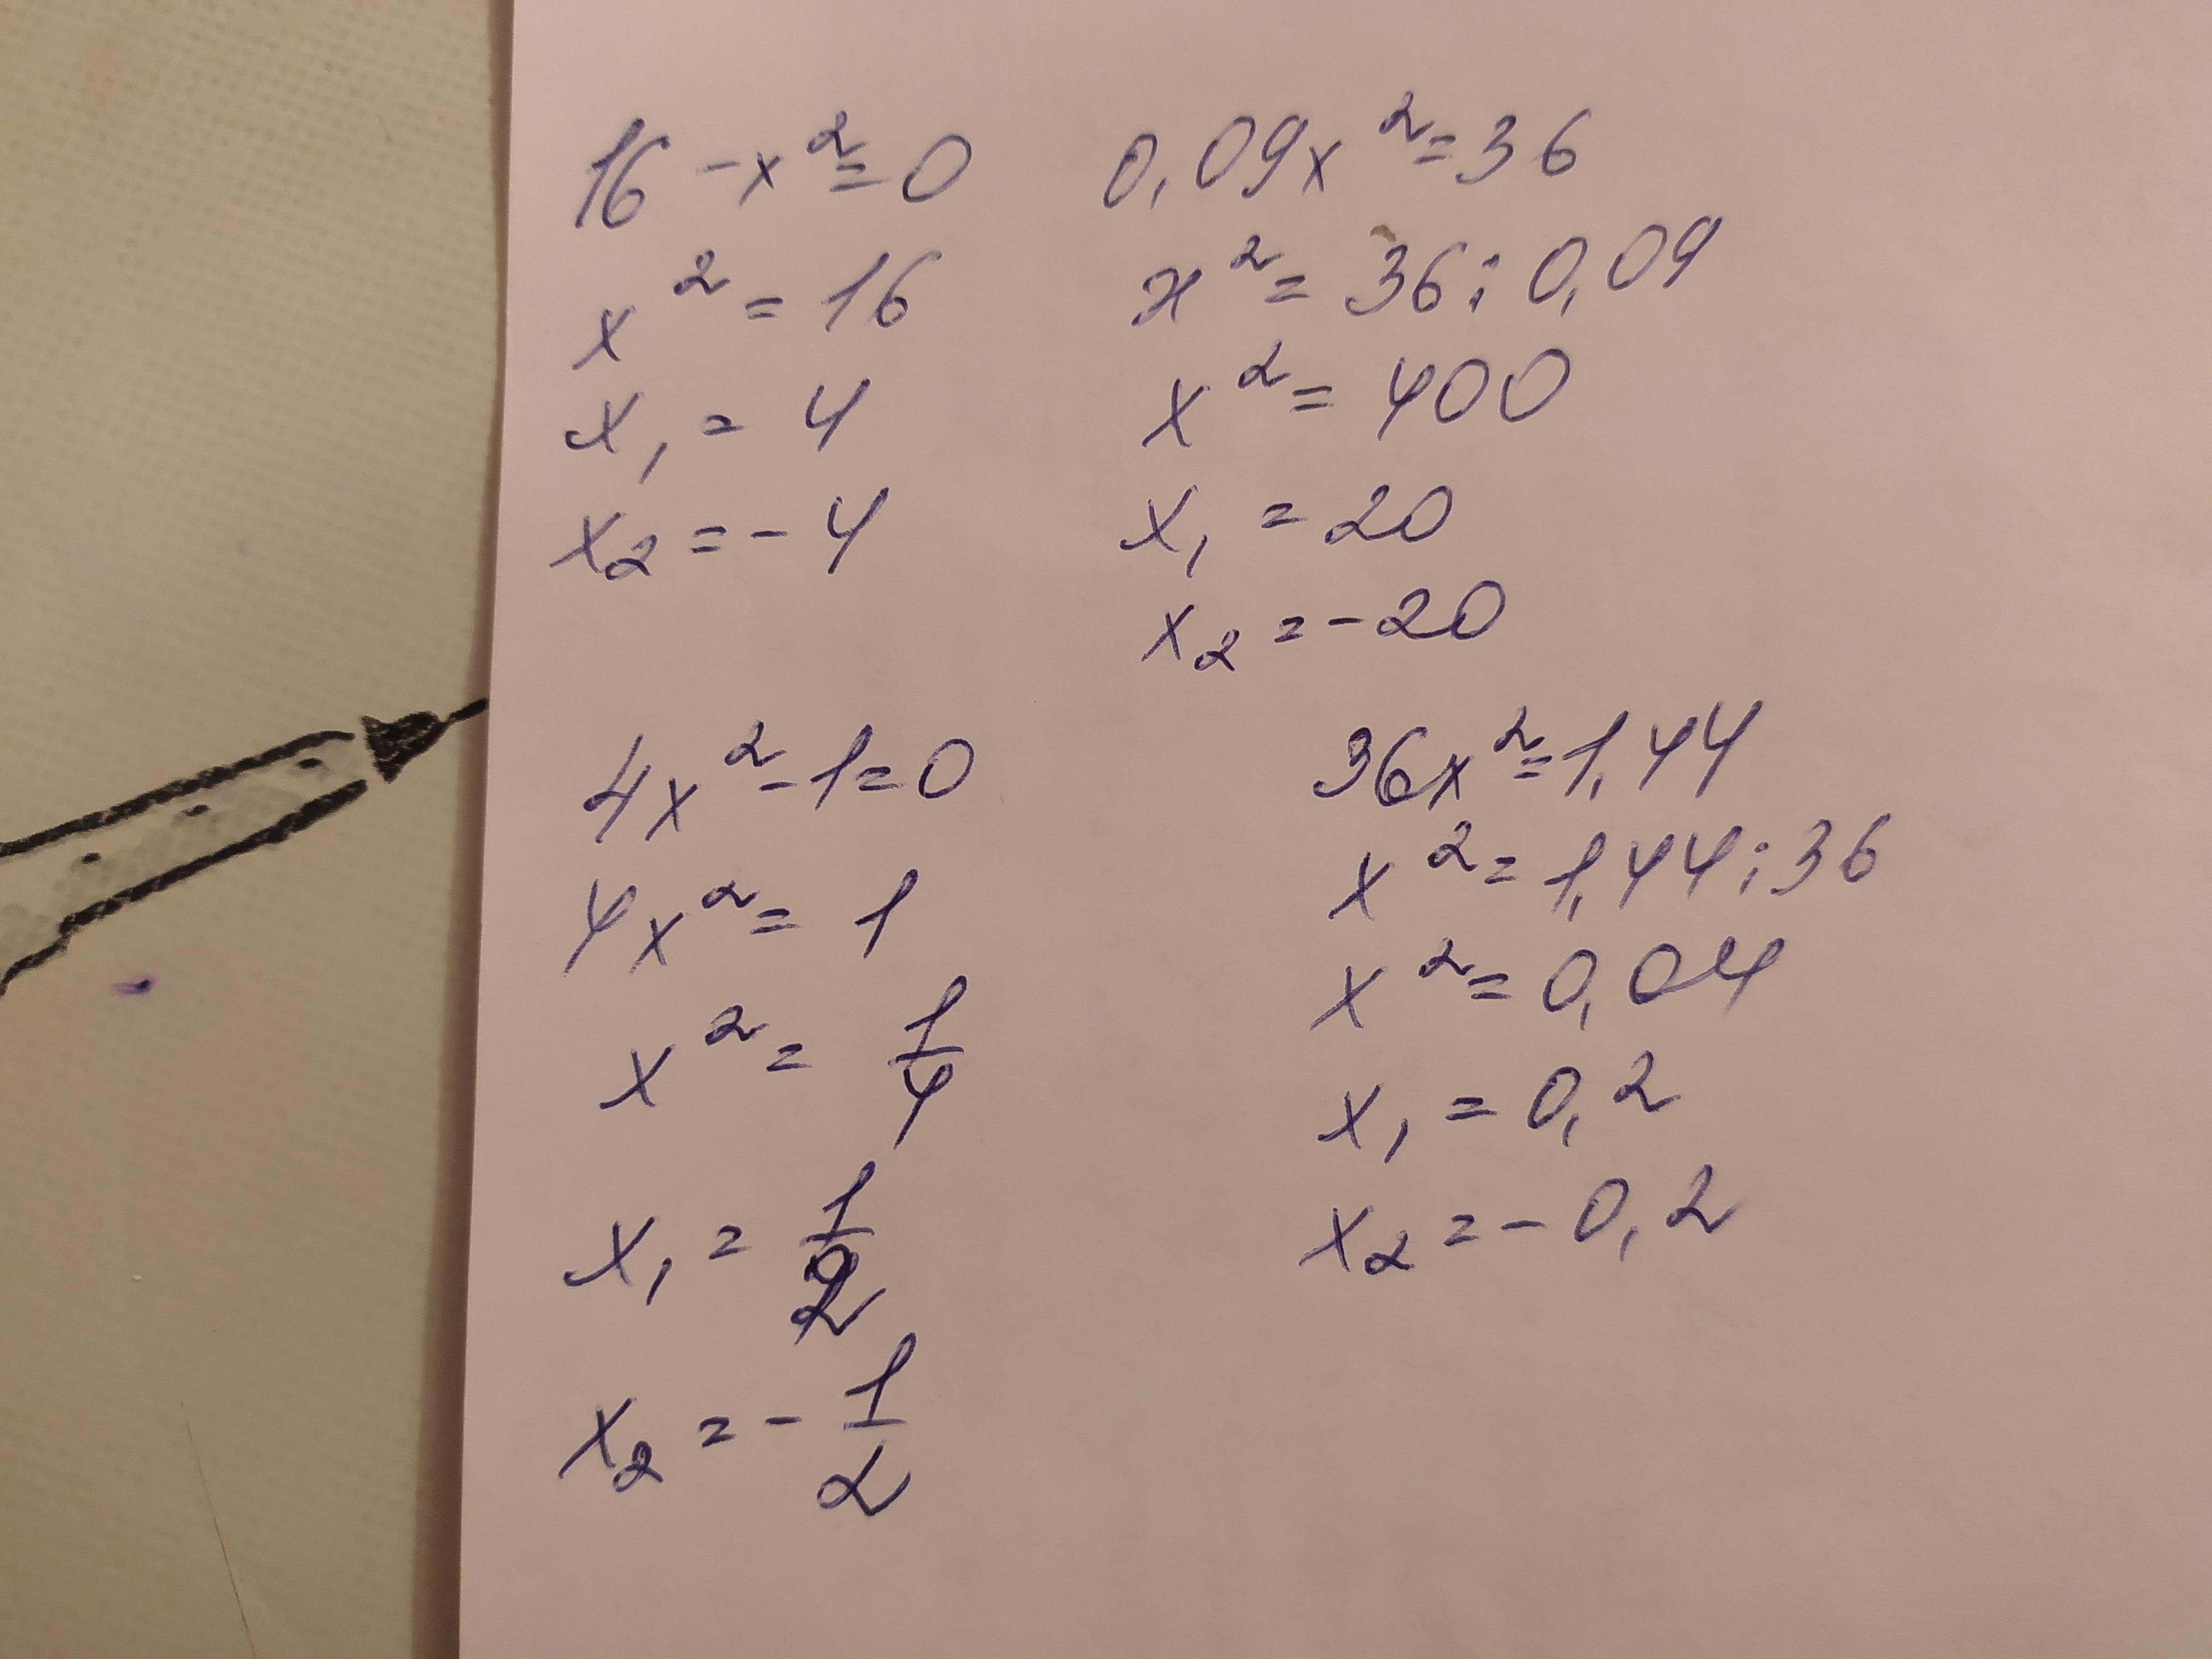 16 - x² = 0
x² = 16
x₁ = 4
x₂ = - 4
0,09x² = 36
x² = 36 : 0,09
x² = 400
x₁ = 20
x₂ = - 20
4x² - 1 = 0
4x² = 1
x² = 1/4
x₁ = 1/2
x₂ = - 1/2
36x² = 1,44
x² = 1,44 : 36
x² = 0,04
x₁ = 0,2
x₂ = - 0,2